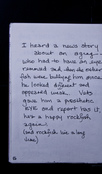 I heard a news story
about an
who had to have an eye
removed and then the other
fish were bullying him because
he looked different and
appeared weak. Vets
gave him a prosthetic
EYE and report has it,
he's a happy rockfish
again.
(and rockfish live a long
time)